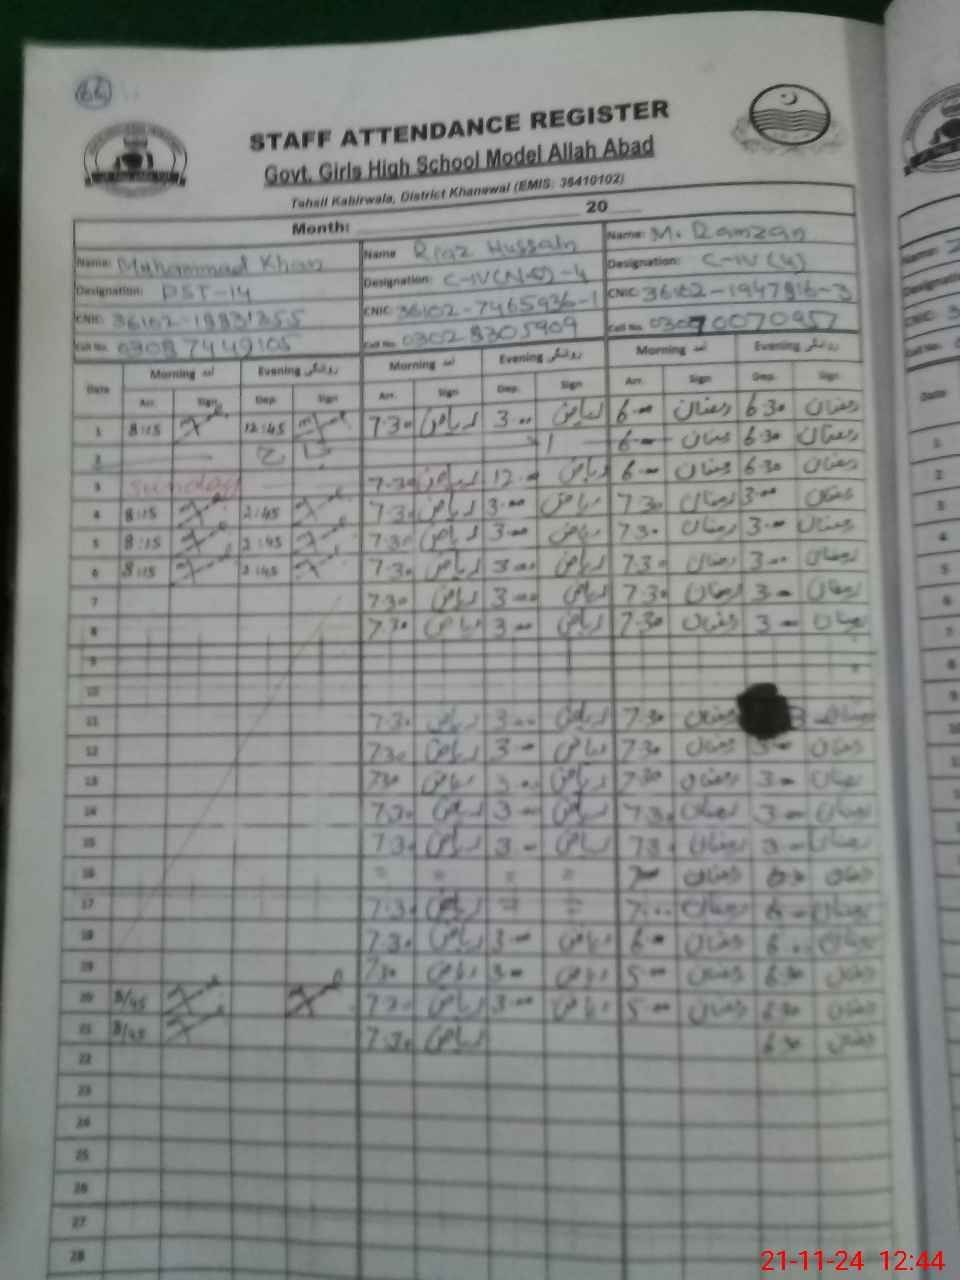 64
STAFF ATTENDANCE REGISTER
Govt. Girls High School Model Allah Abad
Tehsil Kabirwala, District Khanewal (EMIS: 36410102)
Month: 20
Name: Muhammad Khan Name Riaz Hussain Name: M. Ramzan
Designation: PST-14 Designation: C-IV(N-Q)-4 Designation: C-IV(4)
CNIC: CNIC: 36102-7465936-1 CNIC: 36102-1947816-3
Cell No. 03087449105 Cell No. 0302 8305909 Cell No. 03070070957
Date Morning آمد Evening روانگی Morning آمد Evening روانگی Morning آمد Evening روانگی
Arr. Sign Dep. Sign Arr. Sign Dep. Sign Arr. Sign Dep. Sign
1 8:15 12:45 7.30 ریاض 3.00 ریاض 6.00 رمضان 6.30 رمضان
2 6.00 رمضان 6.30 رمضان
3 Sunday 7.30 ریاض 12.00 ریاض 6.00 رمضان 6.30 رمضان
4 8:15 2:45 7.30 ریاض 3.00 ریاض 7.30 رمضان 3.00 رمضان
5 8:15 2:45 7.30 ریاض 3.00 ریاض 7.30 رمضان 3.00 رمضان
6 8:15 2:45 7.30 ریاض 3.00 ریاض 7.30 رمضان 3.00 رمضان
7 7.30 ریاض 3.00 ریاض 7.30 رمضان 3.00 رمضان
8 7.30 ریاض 3.00 ریاض 7.30 رمضان 3.00 رمضان
9
10
11 7.30 ریاض 3.00 ریاض 7.30 رمضان 3.00 رمضان
12 7.30 ریاض 3.00 ریاض 7.30 رمضان 3.00 رمضان
13 7.30 ریاض 3.00 ریاض 7.30 رمضان 3.00 رمضان
14 7.30 ریاض 3.00 ریاض 7.30 رمضان 3.00 رمضان
15 7.30 ریاض 3.00 ریاض 7.30 رمضان 3.00 رمضان
16 = = = = 7.00 رمضان 6.30 رمضان
17 7.30 ریاض = = 7.00 رمضان 6.00 رمضان
18 7.30 ریاض 3.00 ریاض 6.00 رمضان 6.00 رمضان
19 7.30 ریاض 3.00 ریاض 5.00 رمضان 6.30 رمضان
20 8/45 7.30 ریاض 3.00 ریاض 5.00 رمضان 6.30 رمضان
21 8/45 7.30 ریاض 6.30 رمضان
22
23
24
25
26
27
28
21-11-24 12:44